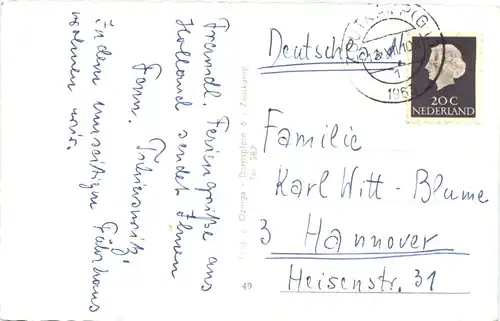 Freundl. Feriengrüße aus
Holland sendet Ihnen
Fam.
In dem umseitigen Fährhaus
wohnen wir.
J. Ozinga - Damsplein 6 - Zoutkamp
Tel. 582
49
Deutschland
1
196
20 C
NEDERLAND
Familie
Karl Witt - Blume
3 Hannover
Heisenstr. 31